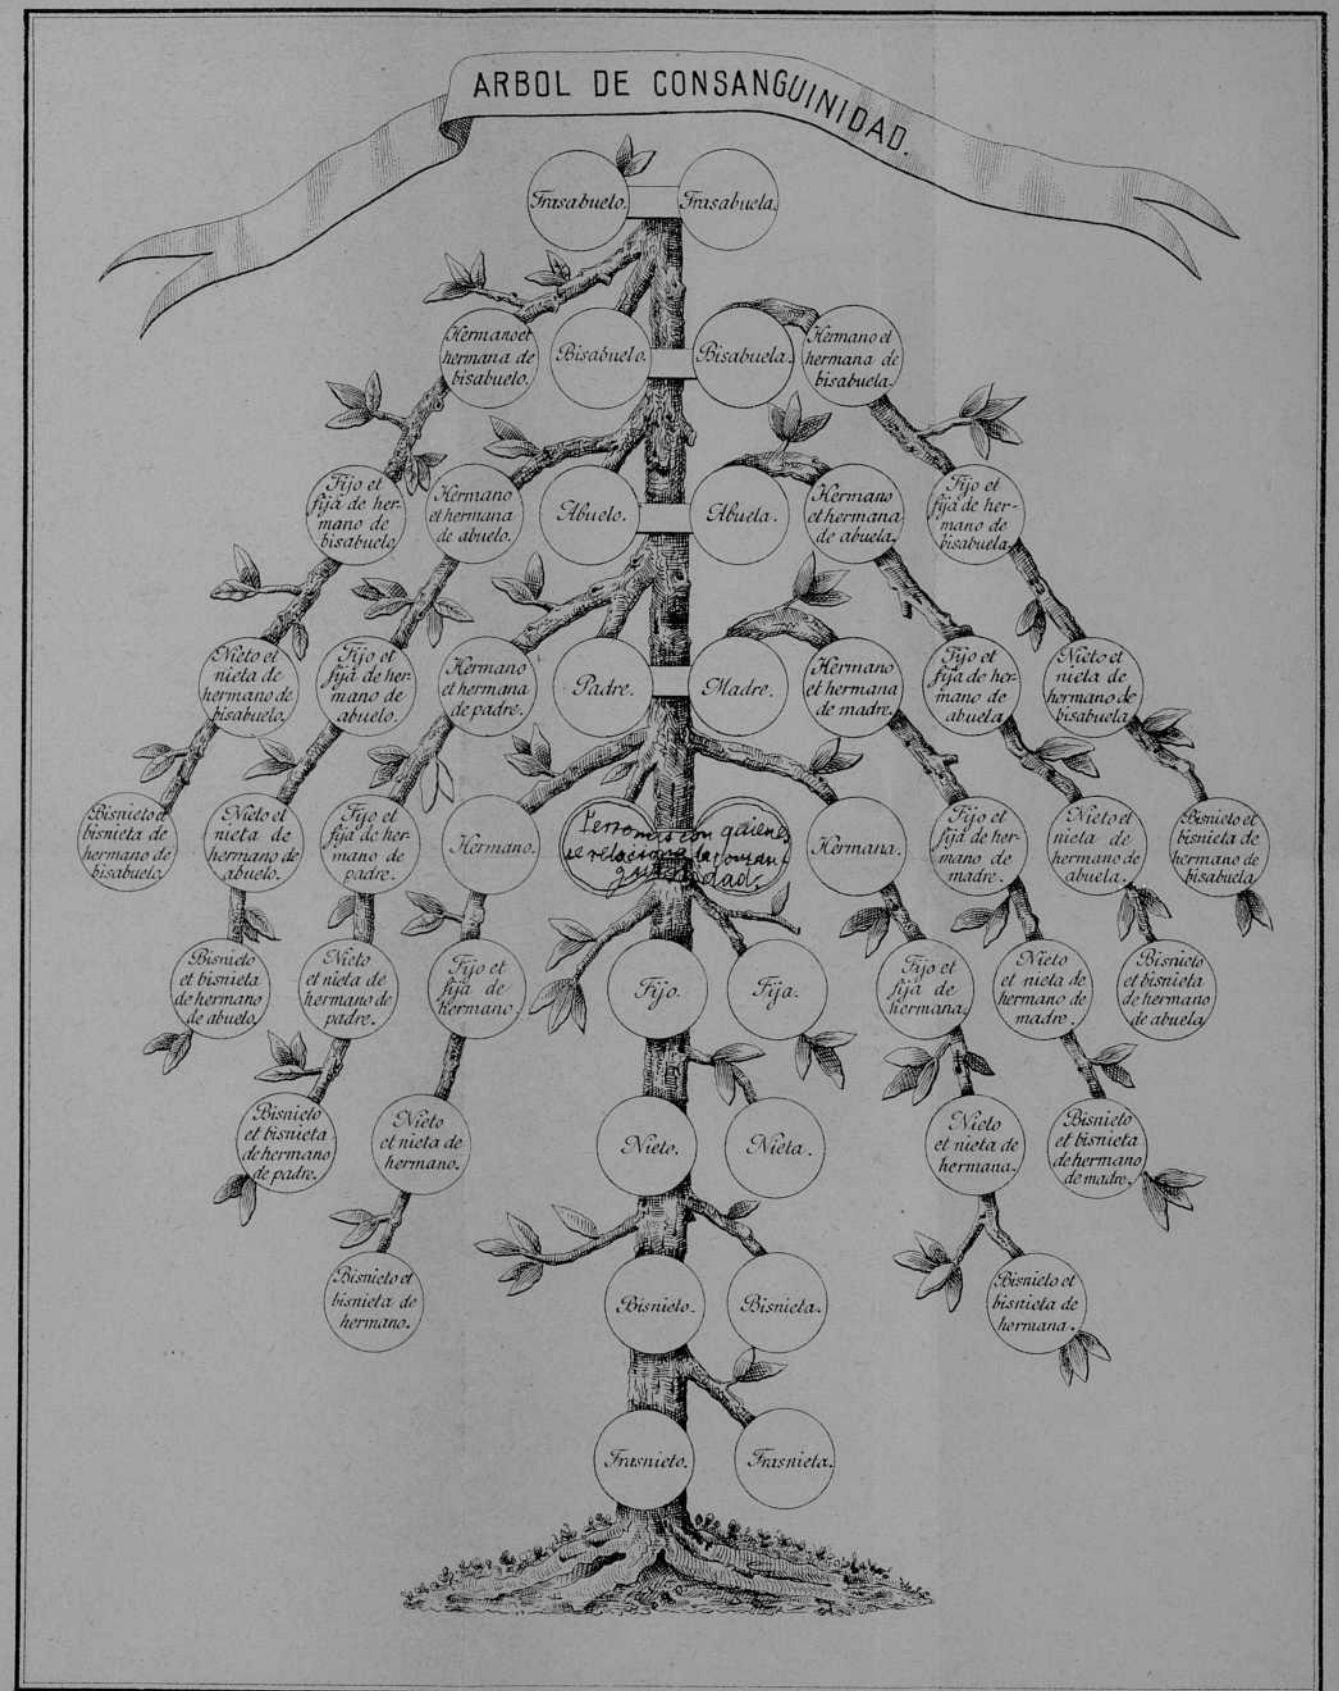 ARBOL DE CONSANGUINIDAD.
Trasabuelo.
Trasabuela.
Hermano et
hermana de
bisabuelo.
Bisabuelo.
Bisabuela.
Hermano et
hermana de
bisabuela.
Fijo et
fija de her-
mano de
bisabuelo
Hermano
et hermana
de abuelo.
Abuelo.
Abuela.
Hermano
et hermana
de abuela.
Fijo et
fija de her-
mano de
bisabuela.
Nieto et
nieta de
hermano de
bisabuelo.
Fijo et
fija de her-
mano de
abuelo.
Hermano
et hermana
de padre.
Padre.
Madre.
Hermano
et hermana
de madre.
Fijo et
fija de her-
mano de
abuela
Nieto et
nieta de
hermano de
bisabuela
Bisnieto et
bisnieta de
hermano de
bisabuelo.
Nieto et
nieta de
hermano de
abuelo.
Fijo et
fija de her-
mano de
padre.
Hermano.
Personas con quienes
se relaciona la consan-
guinidad.
Hermana.
Fijo et
fija de her-
mano de
madre.
Nieto et
nieta de
hermano de
abuela.
Bisnieto et
bisnieta de
hermano de
bisabuela
Bisnieto
et bisnieta
de hermano
de abuelo.
Nieto
et nieta de
hermano de
padre.
Fijo et
fija de
hermano.
Fijo.
Fija.
Fijo et
fija de
hermana.
Nieto
et nieta de
hermano de
madre.
Bisnieto
et bisnieta
de hermano
de abuela
Bisnieto
et bisnieta
de hermano
de padre.
Nieto
et nieta de
hermano.
Nieto.
Nieta.
Nieto
et nieta de
hermana.
Bisnieto
et bisnieta
de hermano
de madre.
Bisnieto et
bisnieta de
hermano.
Bisnieto.
Bisnieta.
Bisnieto et
bisnieta de
hermana.
Trasnieto.
Trasnieta.